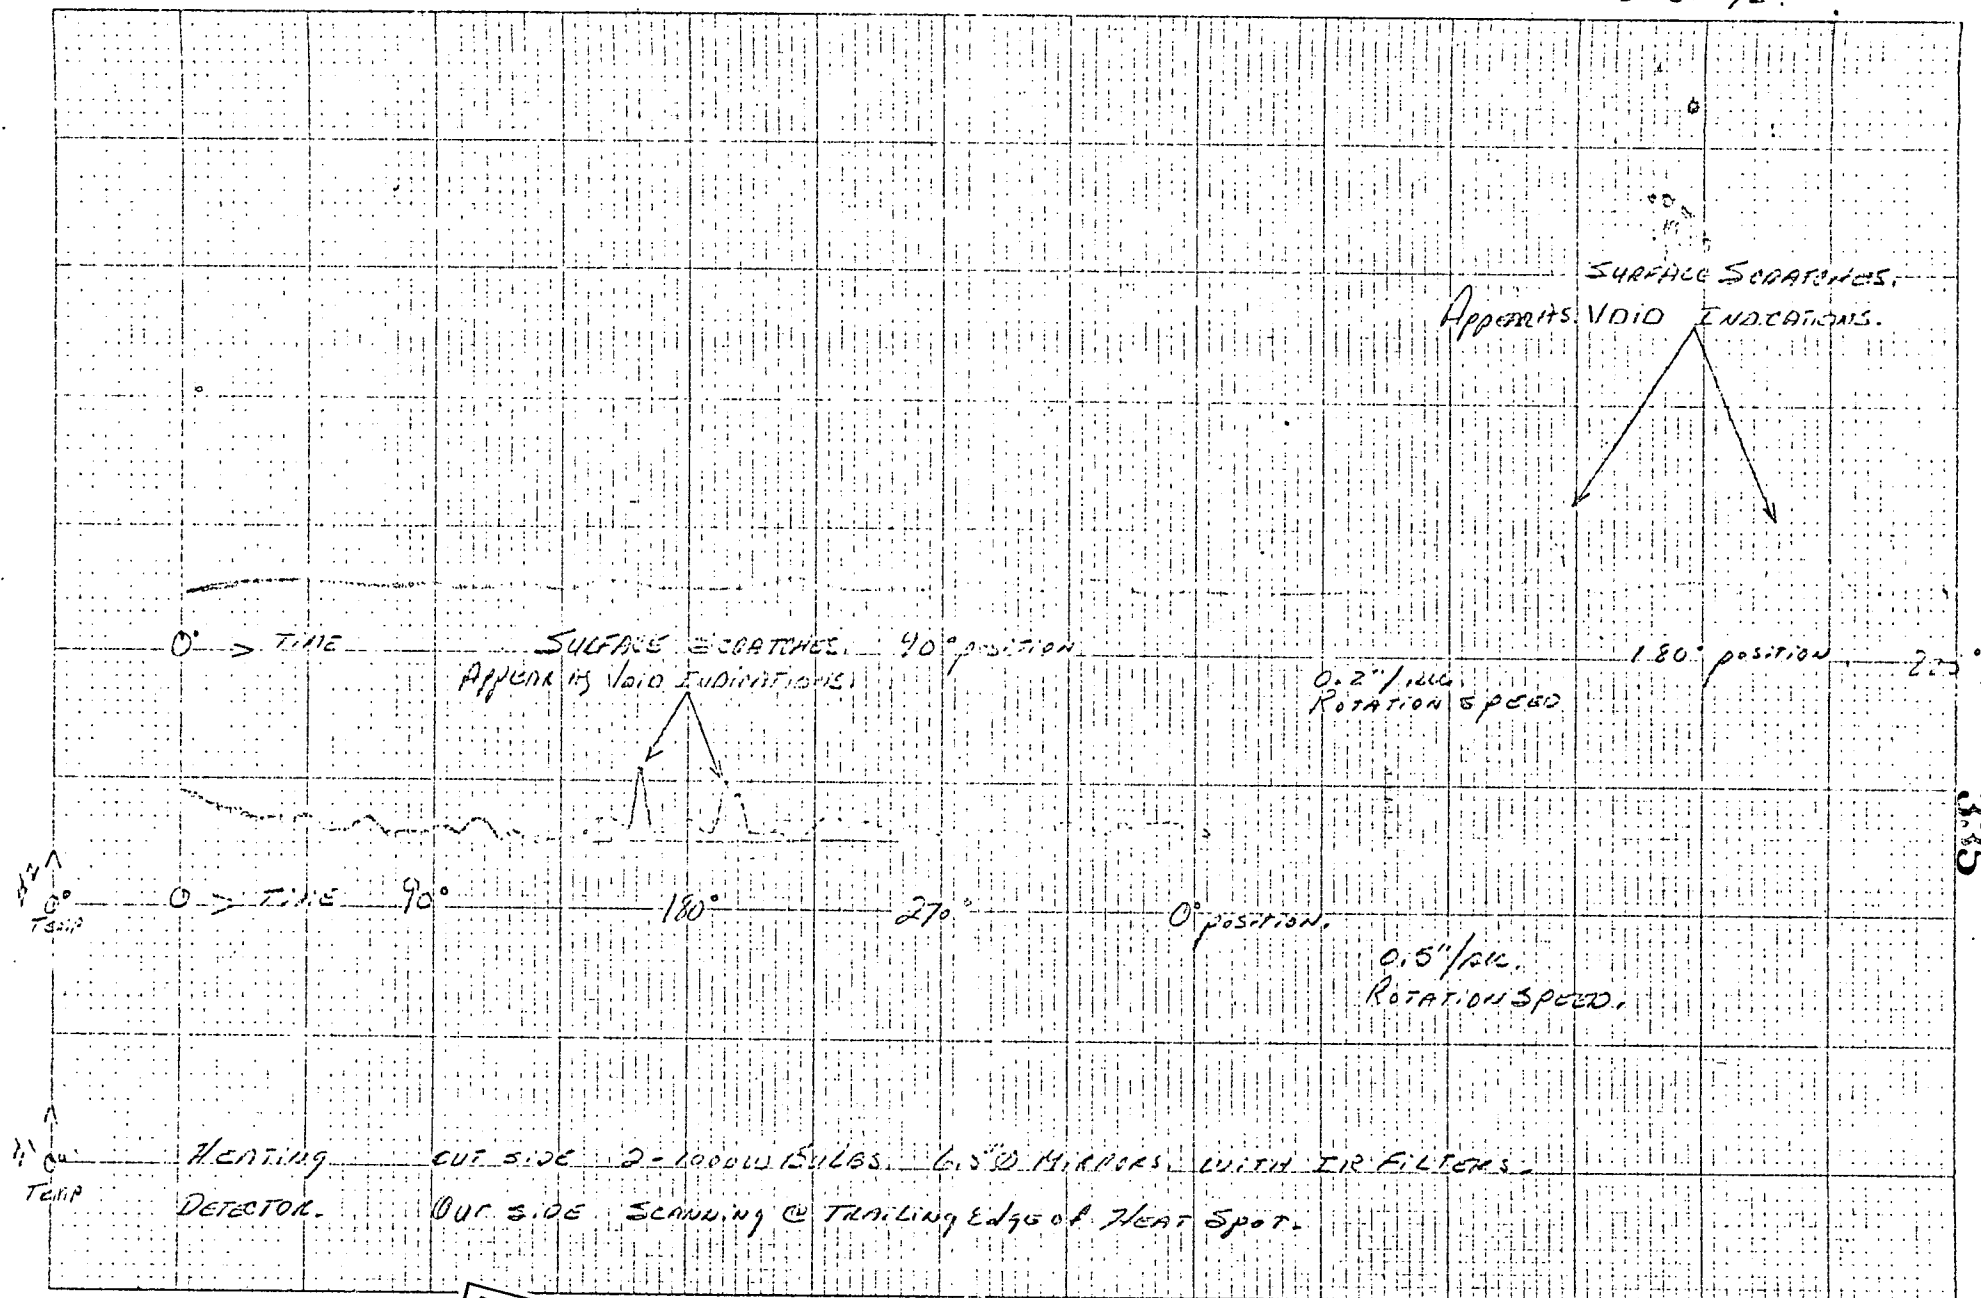 SURFACE SCRATCHES.
APPEAR AS VOID INDICATIONS.
0° > TIME
SURFACE SCRATCHES.
90° POSITION
180° POSITION
APPEAR AS VOID INDICATIONS.
0.2"/sec.
ROTATION SPEED
335
#2
0°
TEMP
0 > TIME
90°
180°
270°
0° POSITION.
0.5"/sec.
ROTATION SPEED.
0°
TEMP
HEATING OUT SIDE 2-1000W BULBS. 6.5"Ø MIRRORS. WITH IR FILTERS.
DETECTOR. OUT SIDE SCANNING @ TRAILING EDGE OF HEAT SPOT.